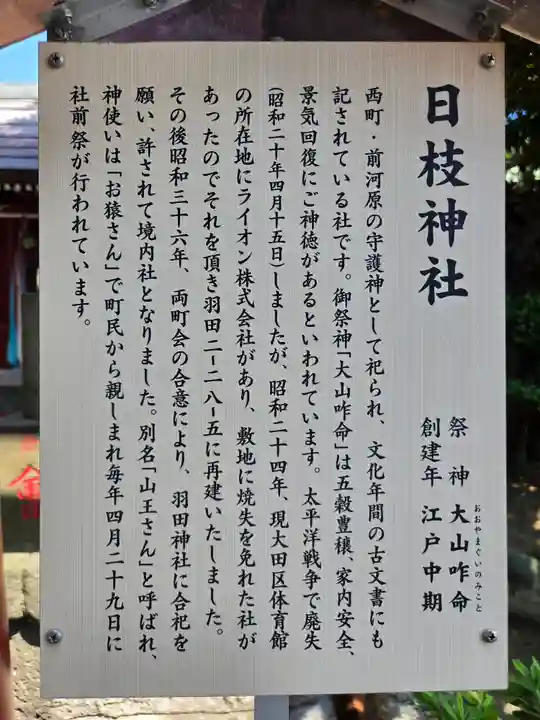 日枝神社
祭神 大山咋命
おおやまぐいのみこと
創建年 江戸中期
西町・前河原の守護神として祀られ、文化年間の古文書にも
記されている社です。御祭神「大山咋命」は五穀豊穣、家内安全、
景気回復にご神徳があるといわれています。太平洋戦争で廃失
(昭和二十年四月十五日)しましたが、昭和二十四年、現大田区体育館
の所在地にライオン株式会社があり、敷地に焼失を免れた社が
あったのでそれを頂き羽田二−二八−五に再建いたしました。
その後昭和三十六年、両町会の合意により、羽田神社に合祀を
願い、許されて境内社となりました。別名「山王さん」と呼ばれ、
神使いは「お猿さん」で町民から親しまれ毎年四月二十九日に
社前祭が行われています。